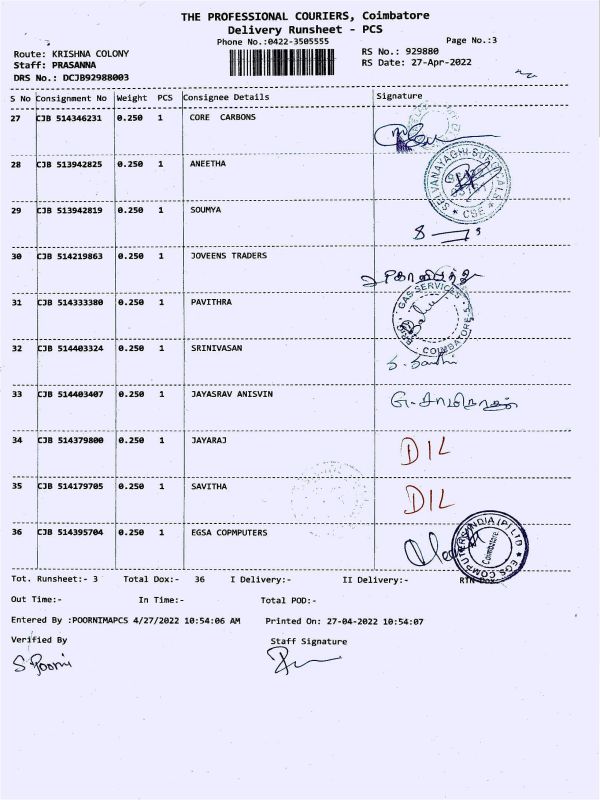 THE PROFESSIONAL COURIERS, Coimbatore
Delivery Runsheet - PCS
Phone No.:0422-3505555
Page No.:3
Route: KRISHNA COLONY
RS No.: 929880
Staff: PRASANNA
RS Date: 27-Apr-2022
DRS No.: DCJB92988003
S No Consignment No Weight PCS Consignee Details Signature
27 CJB 514346231 0.250 1 CORE CARBONS
28 CJB 513942825 0.250 1 ANEETHA
SELVANAYAGHI SURGICALS ★ CBE ★
29 CJB 513942819 0.250 1 SOUMYA
30 CJB 514219863 0.250 1 JOVEENS TRADERS
31 CJB 514333380 0.250 1 PAVITHRA
GAS SERVICES COIMBATORE
32 CJB 514403324 0.250 1 SRINIVASAN
33 CJB 514403407 0.250 1 JAYASRAV ANISVIN
34 CJB 514379800 0.250 1 JAYARAJ DIL
35 CJB 514179705 0.250 1 SAVITHA DIL
36 CJB 514395704 0.250 1 EGSA COPMPUTERS
EGS COMPUTERS INDIA (P) LTD ★ Coimbatore
Tot. Runsheet:- 3 Total Dox:- 36 I Delivery:- II Delivery:- RTN Dox:-
Out Time:- In Time:- Total POD:-
Entered By :POORNIMAPCS 4/27/2022 10:54:06 AM Printed On: 27-04-2022 10:54:07
Verified By Staff Signature
S. Poorni